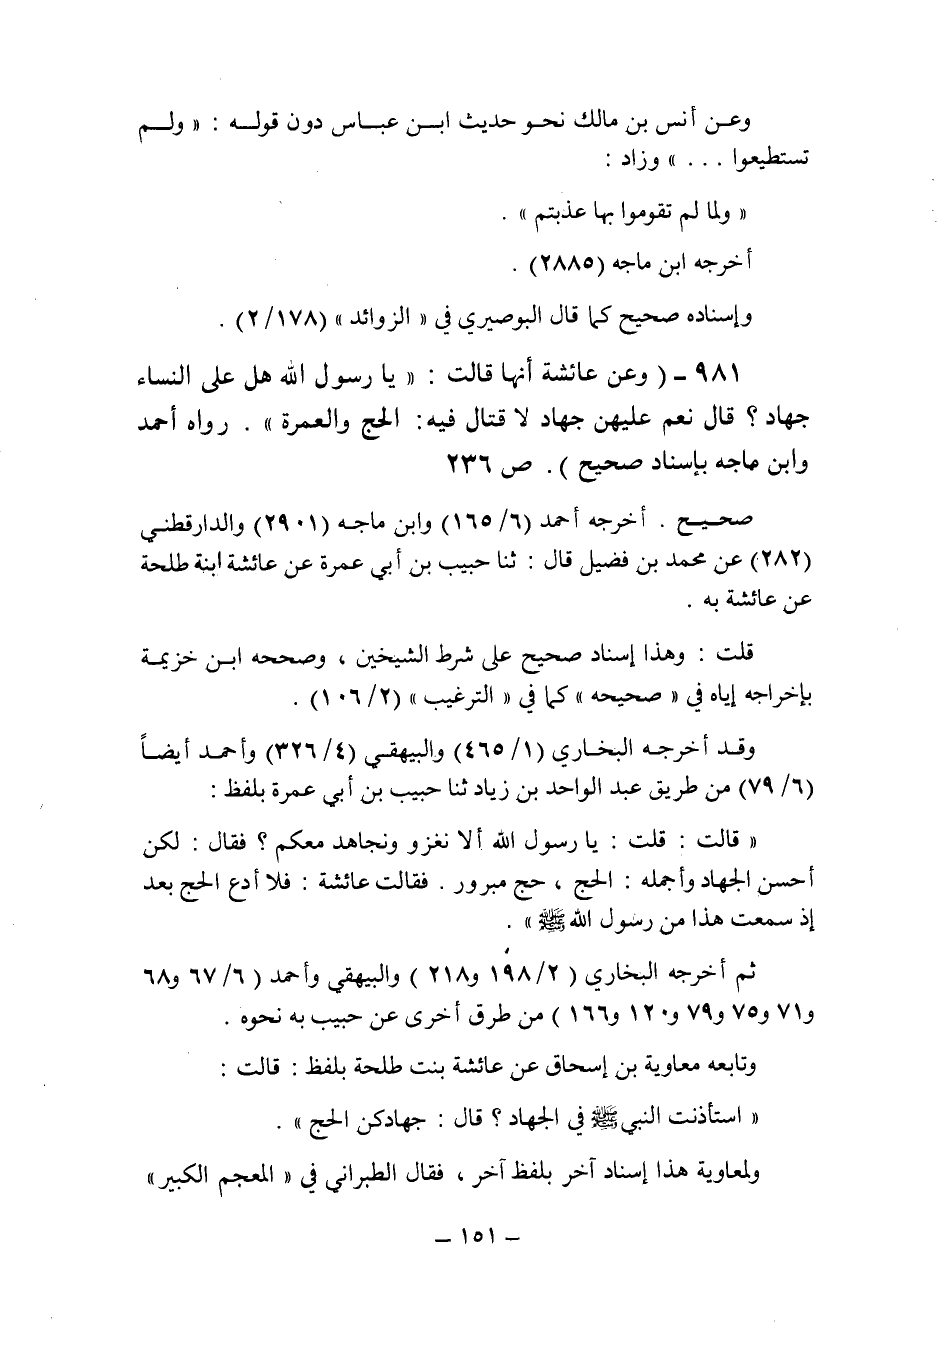 وعن أنس بن مالك نحو حديث ابن عباس دون قوله : « ولم
تستطيعوا . . . » وزاد :
« ولما لم تقوموا بها عذبتم » .
أخرجه ابن ماجه (٢٨٨٥) .
وإسناده صحيح كما قال البوصيري في « الزوائد » (١٧٨/ ٢) .
٩٨١ - ( وعن عائشة أنها قالت : « يا رسول الله هل على النساء
جهاد ؟ قال نعم عليهن جهاد لا قتال فيه: الحج والعمرة » . رواه أحمد
وابن ماجه بإسناد صحيح ). ص ٢٣٦
صحيح . أخرجه أحمد (٦/ ١٦٥) وابن ماجه (٢٩٠١) والدارقطني
(٢٨٢) عن محمد بن فضيل قال : ثنا حبيب بن أبي عمرة عن عائشة ابنة طلحة
عن عائشة به .
قلت : وهذا إسناد صحيح على شرط الشيخين ، وصححه ابن خزيمة
بإخراجه إياه في « صحيحه » كما في « الترغيب » (٢/ ١٠٦) .
وقد أخرجه البخاري (١/ ٤٦٥) والبيهقي (٤/ ٣٢٦) وأحمد أيضاً
(٦/ ٧٩) من طريق عبد الواحد بن زياد ثنا حبيب بن أبي عمرة بلفظ :
« قالت : قلت : يا رسول الله ألا نغزو ونجاهد معكم ؟ فقال : لكن
أحسن الجهاد وأجمله : الحج ، حج مبرور . فقالت عائشة : فلا أدع الحج بعد
إذ سمعت هذا من رسول الله ﷺ » .
ثم أخرجه البخاري ( ٢/ ١٩٨ و٢١٨ ) والبيهقي وأحمد ( ٦/ ٦٧ و٦٨
و٧١ و٧٥ و٧٩ و١٢٠ و١٦٦ ) من طرق أخرى عن حبيب به نحوه .
وتابعه معاوية بن إسحاق عن عائشة بنت طلحة بلفظ : قالت :
« استأذنت النبي ﷺ في الجهاد ؟ قال : جهادكن الحج » .
ولمعاوية هذا إسناد آخر بلفظ آخر ، فقال الطبراني في « المعجم الكبير »
- ١٥١ -